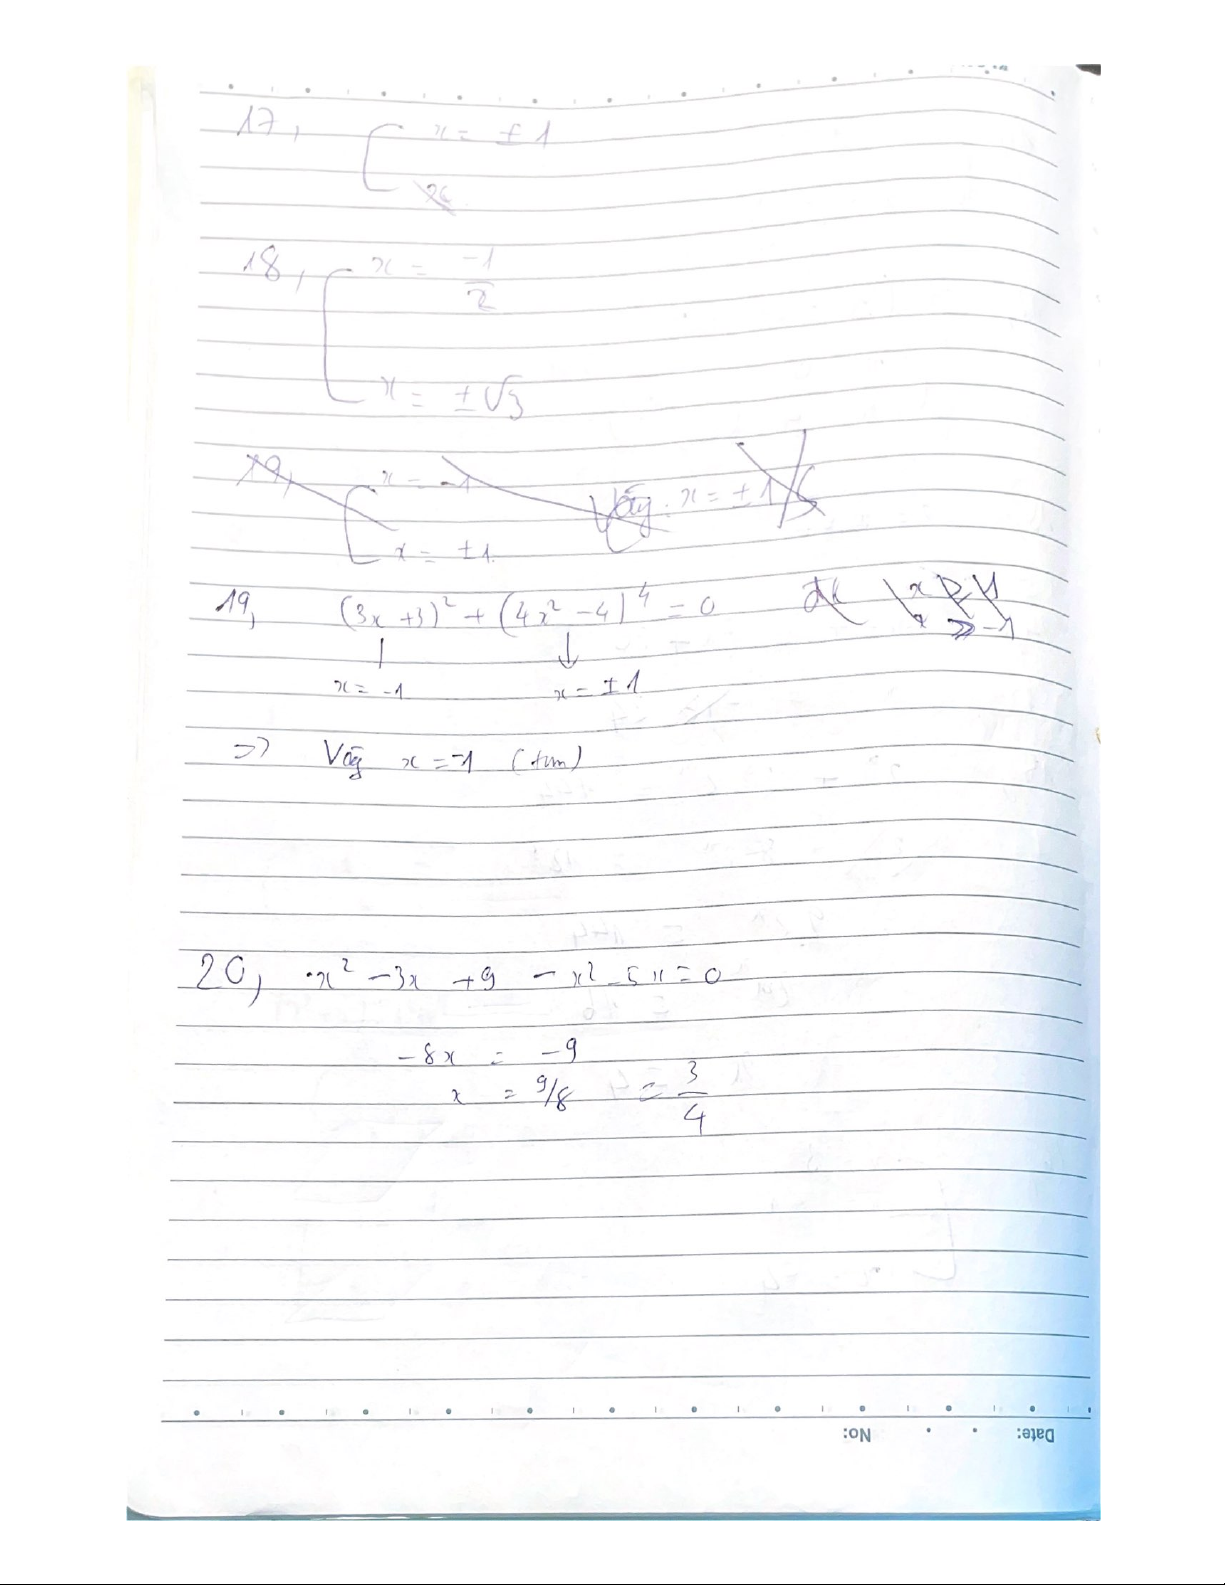 17, x = ± 1
18, x = -1/2
x = ± √3
19, x = -1 Vậy x = ± 1
x = ± 1
19, (3x + 3)² + (4x² - 4)⁴ = 0 đk x
x ≥ -1
x = -1 x = ± 1
=> Vậy x = -1 (t/m)
20, x² - 3x + 9 - x² - 5x = 0
-8x = -9
x = 9/8 = 3/4
No: Date: